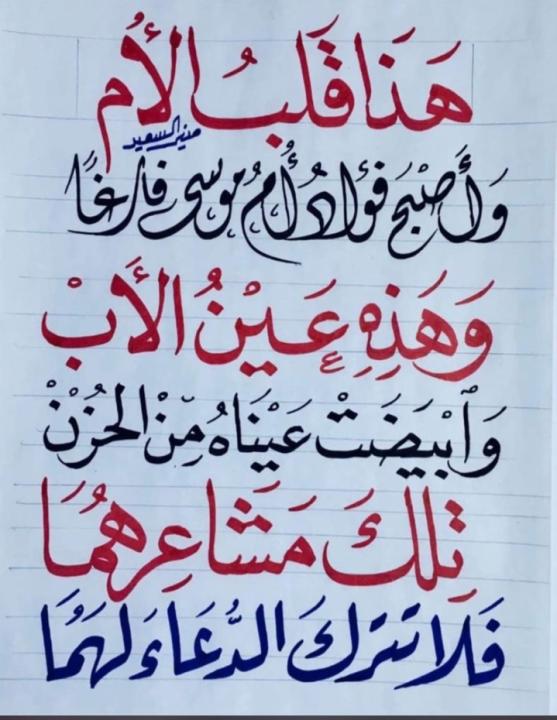 هَذَا قَلبُ الأُم
منير السعيد
وَأَصْبَحَ فُؤَادُ أُمُ مُوسَى فَارِغًا
وَهَذِهِ عَيْنُ الأَبْ
وَٱبْيَضَتْ عَيْنَاهُ مِّنْ الحُزْنْ
تِلكَ مَشَاعِرهُمَا
فَلَا تترَكَ الدُّعَاءَ لَهُمَا